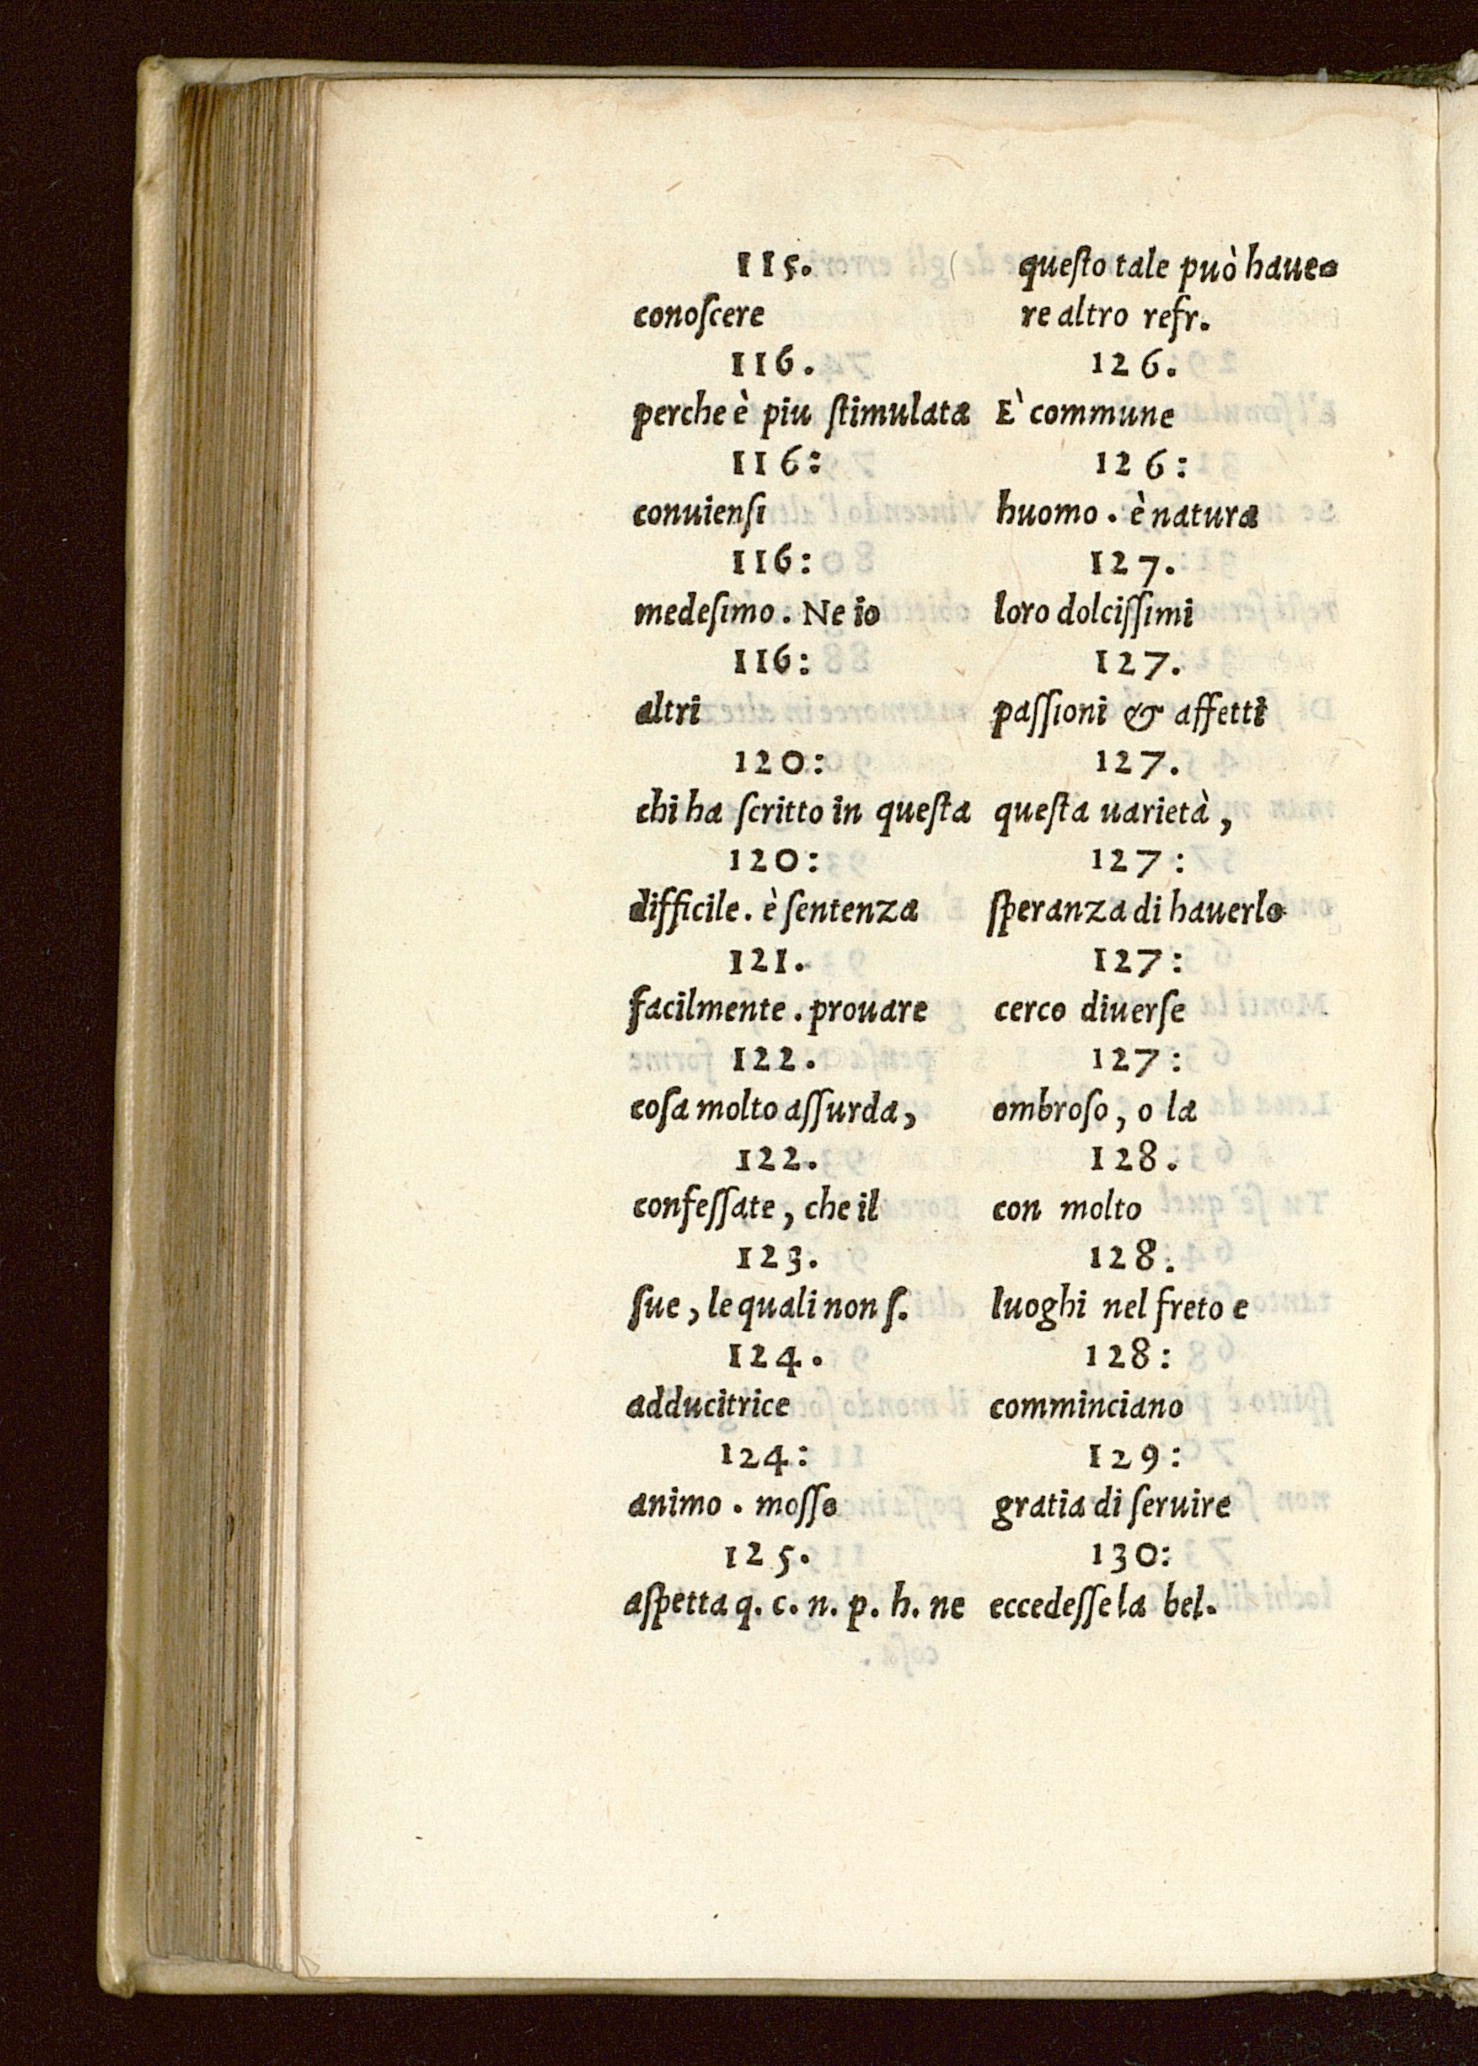 115.
conoſcere
116.
perche è piu ſtimulata
116:
conuienſi
116:
medeſimo. Ne io
116:
altri
120:
chi ha ſcritto in queſta
120:
difficile. è ſentenza
121.
facilmente. prouare
122.
coſa molto aſſurda,
122.
confeſſate, che il
123.
ſue, le quali non ſ.
124.
adducitrice
124:
animo. moſſo
125.
aſpetta q. c. n. p. h. ne
queſto tale può haue-
re altro refr.
126.
E` commune
126:
huomo. è natura
127.
loro dolciſſimi
127.
paſſioni & affetti
127.
queſta uarietà,
127:
ſperanza di hauerlo
127:
cerco diuerſe
127:
ombroſo, o la
128.
con molto
128.
luoghi nel freto e
128:
comminciano
129:
gratia di ſeruire
130:
eccedeſſe la bel.